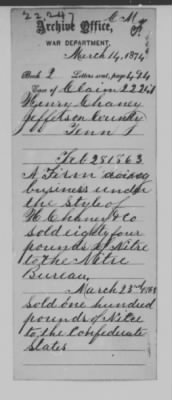 22247
C M
Archive Office,
WAR DEPARTMENT.
March 14, 1874
Book 2 Letters sent, page 424
Case of Claim 22261
Henry Chaney
Jefferson County
Tenn
Feb 28 1863
A Firm doing
business under
the style of
H Chaney & Co
sold eighty four
pounds of Nitre
to the Nitre
Bureau,
March 23rd 1863
sold one hundred
pounds of Nitre
to the Confederate
States